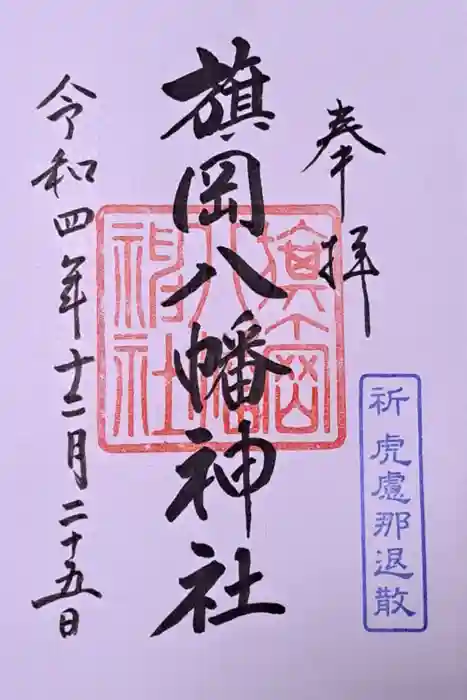 奉拝
祈 虎慮那退散
旗岡八幡神社
旗岡八幡神社
令和四年十二月二十五日